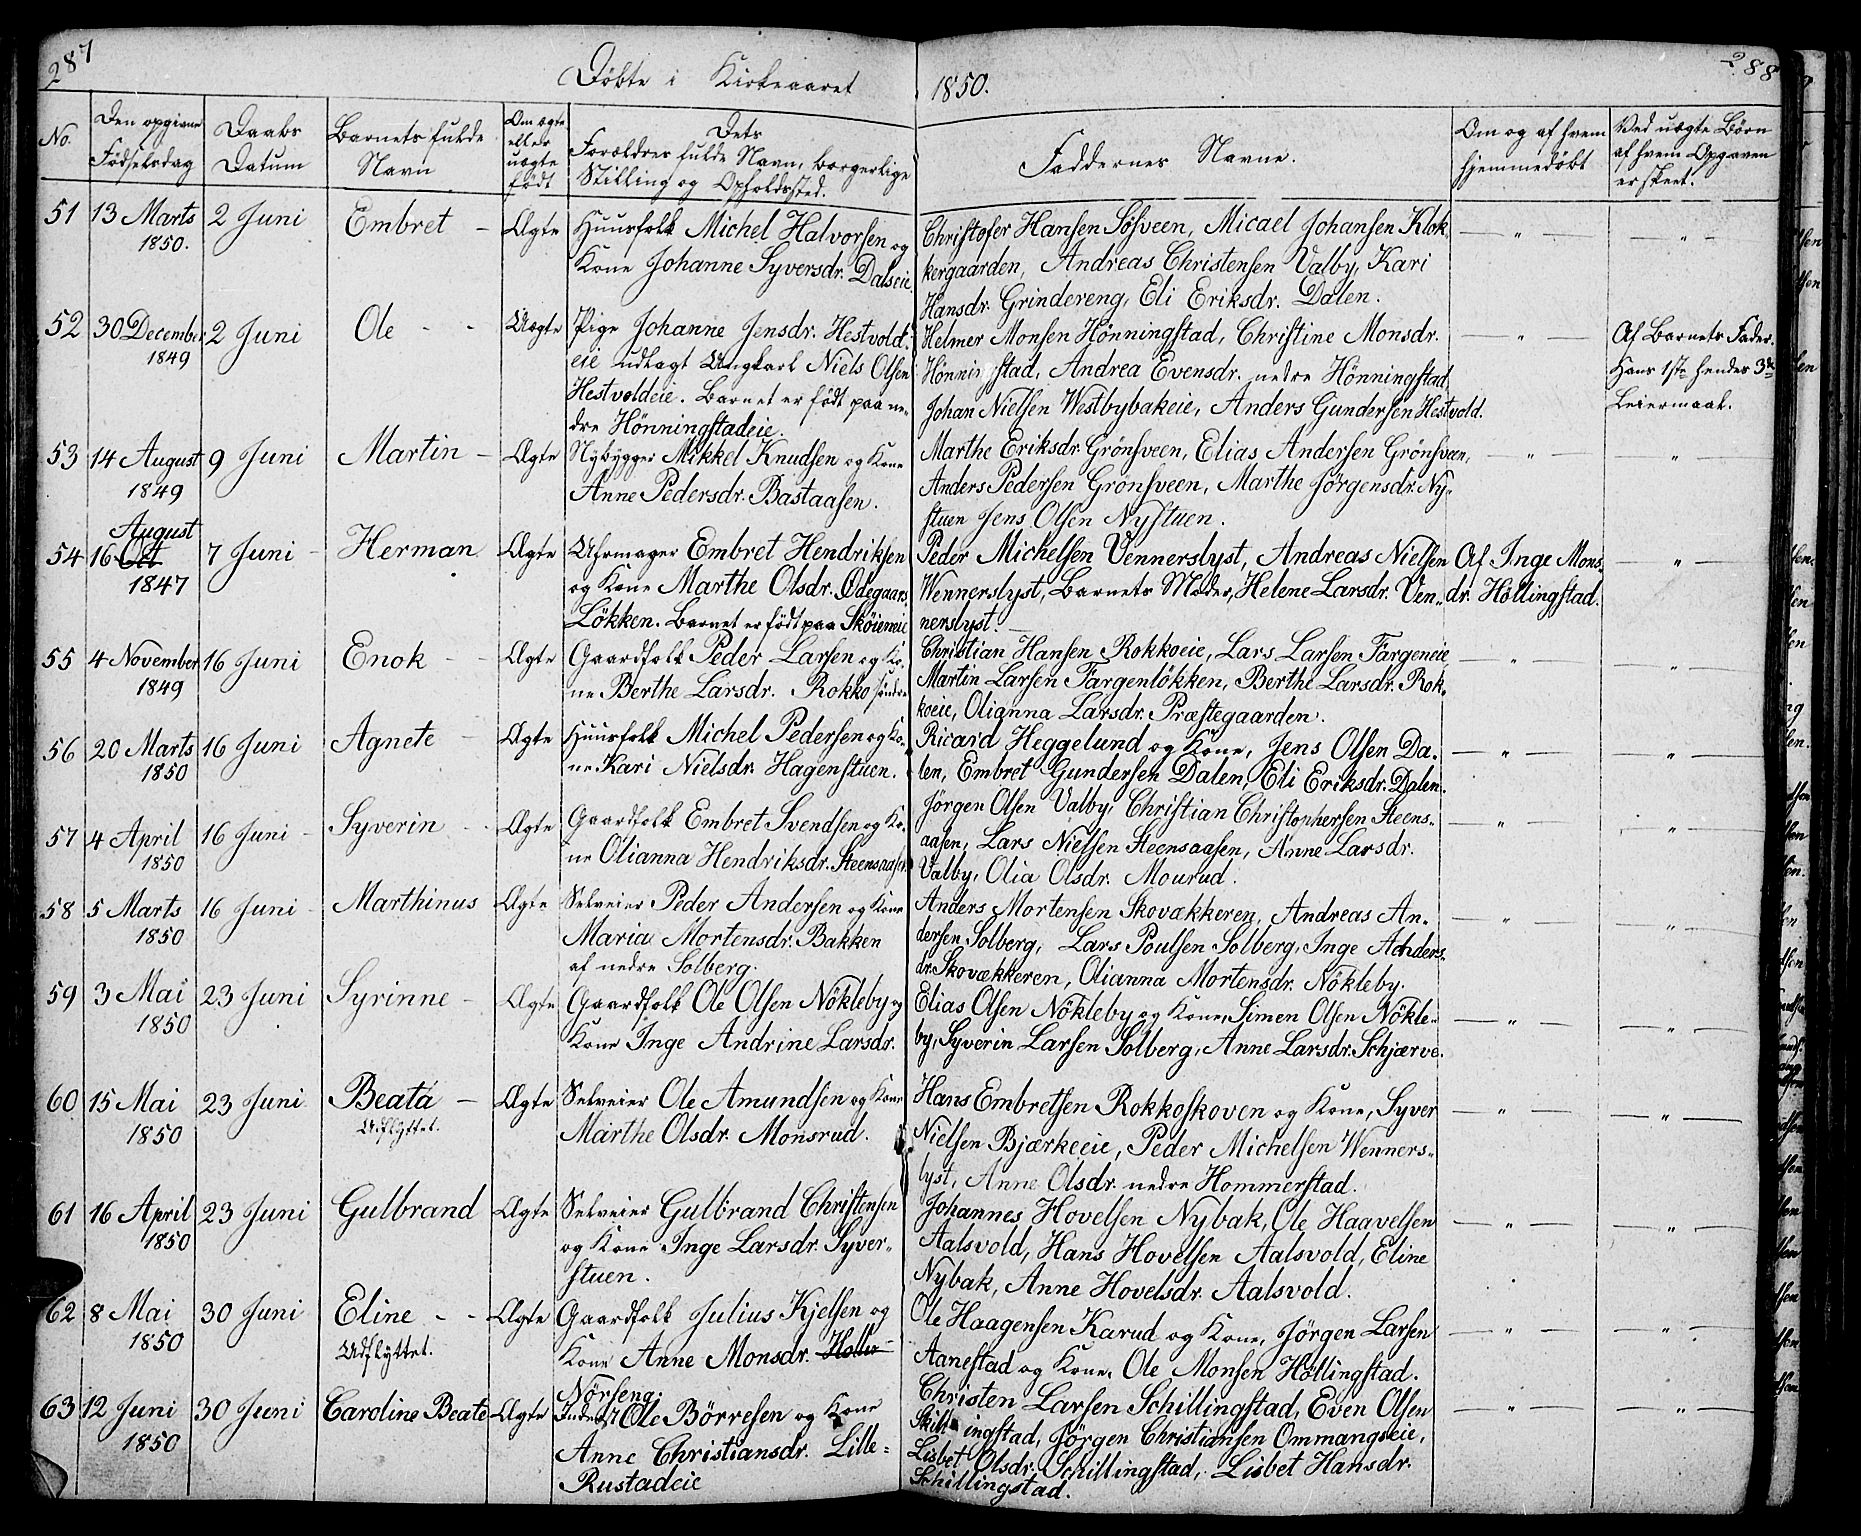 287
288
Døbte i Kirkeaaret 1850.
No.
Den opgivne Fødselsdag
Daabs Datum
Barnets fulde Navn
Om ægte eller uægte født
Dets Forældres fulde Navn, borgerlige Stilling og Opholdssted.
Faddernes Navne.
Om og af hvem hjemmedøbt
Ved uægte Børn af hvem Opgaven er skeet.
51 13 Marts 1850. 2 Juni Embret - Ægte
Huusfolk Michel Halvorsen og
Kone Johanne Syversdr. Dalseie
Christofer Hansen Søsveen, Micael Johansen Klok-
kergaarden, Andreas Christensen Valby, Kari
Hansdr. Grindereng, Eli Eriksdr. Dalen.
— " — — " —
52 30 December 1849 2 Juni Ole - - Uægte
Pige Johanne Jensdr. Hestvold-
eie udlagt Ungkarl Niels Olsen
Hestvoldeie. Barnet er født paa ne-
dre Hönningstadeie.
Helmer Monsen Hönningstad, Christine Monsdr.
Hönningstad, Andrea Evensdr. nedre Hönningstad,
Johan Nielsen Westbybakeie, Anders Gundersen Hestvold.
— " —
Af Barnets Fader.
Hans 1ste hendes 3die
Leiermaal.
53 14 August 1849 9 Juni Martin - Ægte
Nybygger Mikkel Knudsen og Kone
Anne Pedersdr. Bastaasen.
Marthe Eriksdr. Grönsveen, Elias Andersen Grönsveen,
Anders Pedersen Grönsveen, Marthe Jörgensdr. Ny-
stuen Jens Olsen Nystuen.
— " — — " —
54 16 Oct August 1847 7 Juni - Herman Ægte
Uhrmager Embret Hendriksen
og Kone Marthe Olsdr. Ödegaars-
Lökken. Barnet er født paa Sköieneie
Peder Michelsen Vennerslyst, Andreas Nielsen
Wennerslyst, Barnets Moder, Helene Larsdr. Ven-
nerslyst. —
Af Inge Mons-
dr. Höllingstad.
— " —
55 4 November 1849 16 Juni Enok - - Ægte
Gaardfolk Peder Larsen og Ko-
ne Berthe Larsdr. Rokko søndre
Christian Hansen Rokkoeie, Lars Larsen Fargeneie,
Martin Larsen Fargenlökken, Berthe Larsdr. Rok-
koeie, Olianna Larsdr. Præstegaarden.
— " — — " —
56 20 Marts 1850 16 Juni Agnete - Ægte
Huusfolk Michel Pedersen og Ko-
ne Kari Nielsdr. Hagenstuen.
Ricard Heggelund og Kone, Jens Olsen Da-
len, Embret Gundersen Dalen, Eli Eriksdr. Dalen.
— " — — " —
57 4 April 1850 16 Juni - Syverin - Ægte
Gaardfolk Embret Svendsen og Ko-
ne Olianna Hendriksdr. Steensaasen.
Jörgen Olsen Valby, Christian Christophersen Steens-
aasen, Lars Nielsen Steensaasen, Anne Larsdr.
Valby, Olia Olsdr. Mourud.
— " — — " —
58 5 Marts 1850 16 Juni - Marthinus Ægte
Selveier Peder Andersen og Kone
Maria Mortensdr. Bakken
af nedre Solberg.
Anders Mortensen Skovækkeren, Andreas An-
dersen Solberg, Lars Poulsen Solberg, Inge Anders-
dr. Skovækkeren, Olianna Mortensdr. Nökleby.
— " — — " —
59 3 Mai 1850 23 Juni Syrinne - Ægte
Gaardfolk Ole Olsen Nökleby og
Kone Inge Andrine Larsdr.
Elias Olsen Nökleby og Kone, Simen Olsen Nökle-
by, Syverin Larsen Solberg, Anne Larsdr. Schjærve.
— " — — " —
60 15 Mai 1850 23 Juni Beata - Ægte
Udflyttet.
Selveier Ole Amundsen og Kone
Marthe Olsdr. Monsrud.
Hans Embretsen Rokkoskoven og Kone, Syver
Nielsen Bjærkeeie, Peder Michelsen Wenners-
lyst, Anne Olsdr. nedre Hommerstad.
— " — — " —
61 16 April 1850 23 Juni Gulbrand Ægte
Selveier Gulbrand Christensen
og Kone Inge Larsdr. Syver-
stuen.
Johannes Hovelsen Nybak, Ole Haavelsen
Aalsvold, Hans Hovelsen Aalsvold, Eline
Nybak, Anne Hovelsdr. Aalsvold.
— " — — " —
62 8 Mai 1850 30 Juni Eline - - Ægte
Udflyttet.
Gaardfolk Julius Kjelsen og
Kone Anne Monsdr. Holler
Nörseng.
Ole Haagensen Karud og Kone, Jörgen Larsen
Aanestad og Kone, Ole Monsen Höllingstad.
— " — — " —
63 12 Juni 1850 30 Juni Caroline Beate Ægte
Inderst Ole Börresen og Kone
Anne Christiansdr. Lille-
Rustadeie
Christen Larsen Schillingstad, Even Olsen
Skillingstad, Jörgen Christiansen Ommangseie,
Lisbet Olsdr. Schillingstad, Lisbet Hansdr.
Schillingstad.
— " — — " —